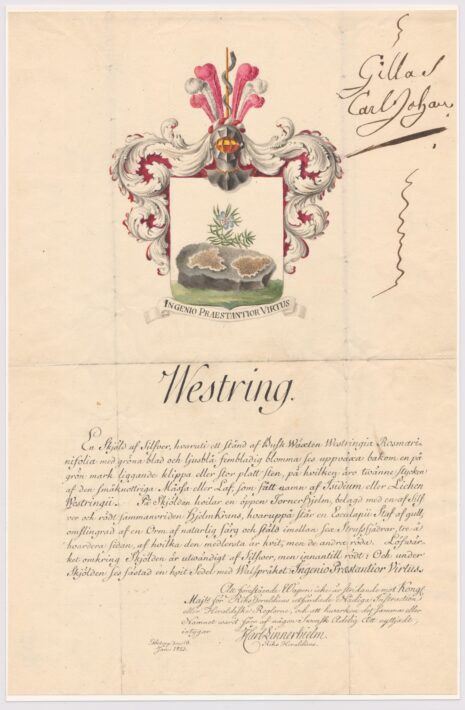 Gillas
Carl Johan
INGENIO PRAESTANTIOR VIRTUS
Westring.
En Sköld af Silfver, hvaruti ett stånd af Busk Växten Westringia Rosmari-
nifolia med gröna blad och ljusblå fembladig blomma ses uppväxa bakom en på
grön mark liggande klippa eller stor platt sten, på hvilken äro tvänne stycken
af den småknottriga Mossa eller Laf, som fått namn af Isidium eller Lichen
Westringii. På Skölden hvilar en öppen Tornerhjelm, belagd med en af Silf-
ver och rödt sammanvriden Hjelmkrans, hvaruppå står en Esculapii Staf af guld,
omslingrad af en Orm af naturlig färg och ställd imellan sex Strutsfjädrar, tre å
hvardera sidan, af hvilka den medlersta är hvit, men de andra röda. Löfvär-
ket omkring Skölden är utvändigt af Silfver, men innantill rödt: Och under
Skölden ses fästad en hvit Sedel med Valspråket: Ingenio Præstantior Virtus.
Att förestående Wapen icke är stridande mot Kongl.
Maj:ts för Riks Heraldicus utfärdade Nådiga Instruction
eller Heraldiska Reglorne, och att hvarken det samma eller
Namnet varit förr af någon Svensk Adelig Ätt nyttjadt,
intygar
Karl Linnerhielm
Riks Heraldicus.